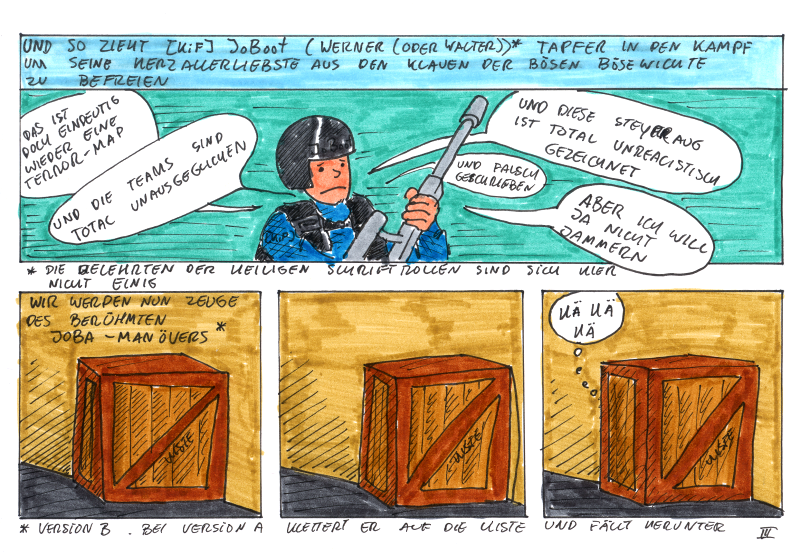 UND SO ZIEHT [KiF] JoBoot (WERNER (ODER WALTER))* TAPFER IN DEN KAMPF
UM SEINE HERZALLERLIEBSTE AUS DEN KLAUEN DER BÖSEN BÖSEWICHTE
ZU BEFREIEN
DAS IST
DOCH EINDEUTIG
WIEDER EINE
TERROR-MAP
UND DIE TEAMS SIND
TOTAL UNAUSGEGLICHEN
UND DIESE STEYERAUG
IST TOTAL UNREALISTISCH
GEZEICHNET
UND FALSCH
GESCHRIEBEN
ABER ICH WILL
JA NICHT
JAMMERN
[KiF]
* DIE GELEHRTEN DER HEILIGEN SCHRIFTROLLEN SIND SICH HIER
NICHT EINIG
WIR WERDEN NUN ZEUGE
DES BERÜHMTEN
JOBA-MANÖVERS *
KISTE
KISTE
HÄ HÄ
HÄ
KISTE
* VERSION B. BEI VERSION A KLETTERT ER AUF DIE KISTE UND FÄLLT HERUNTER
III